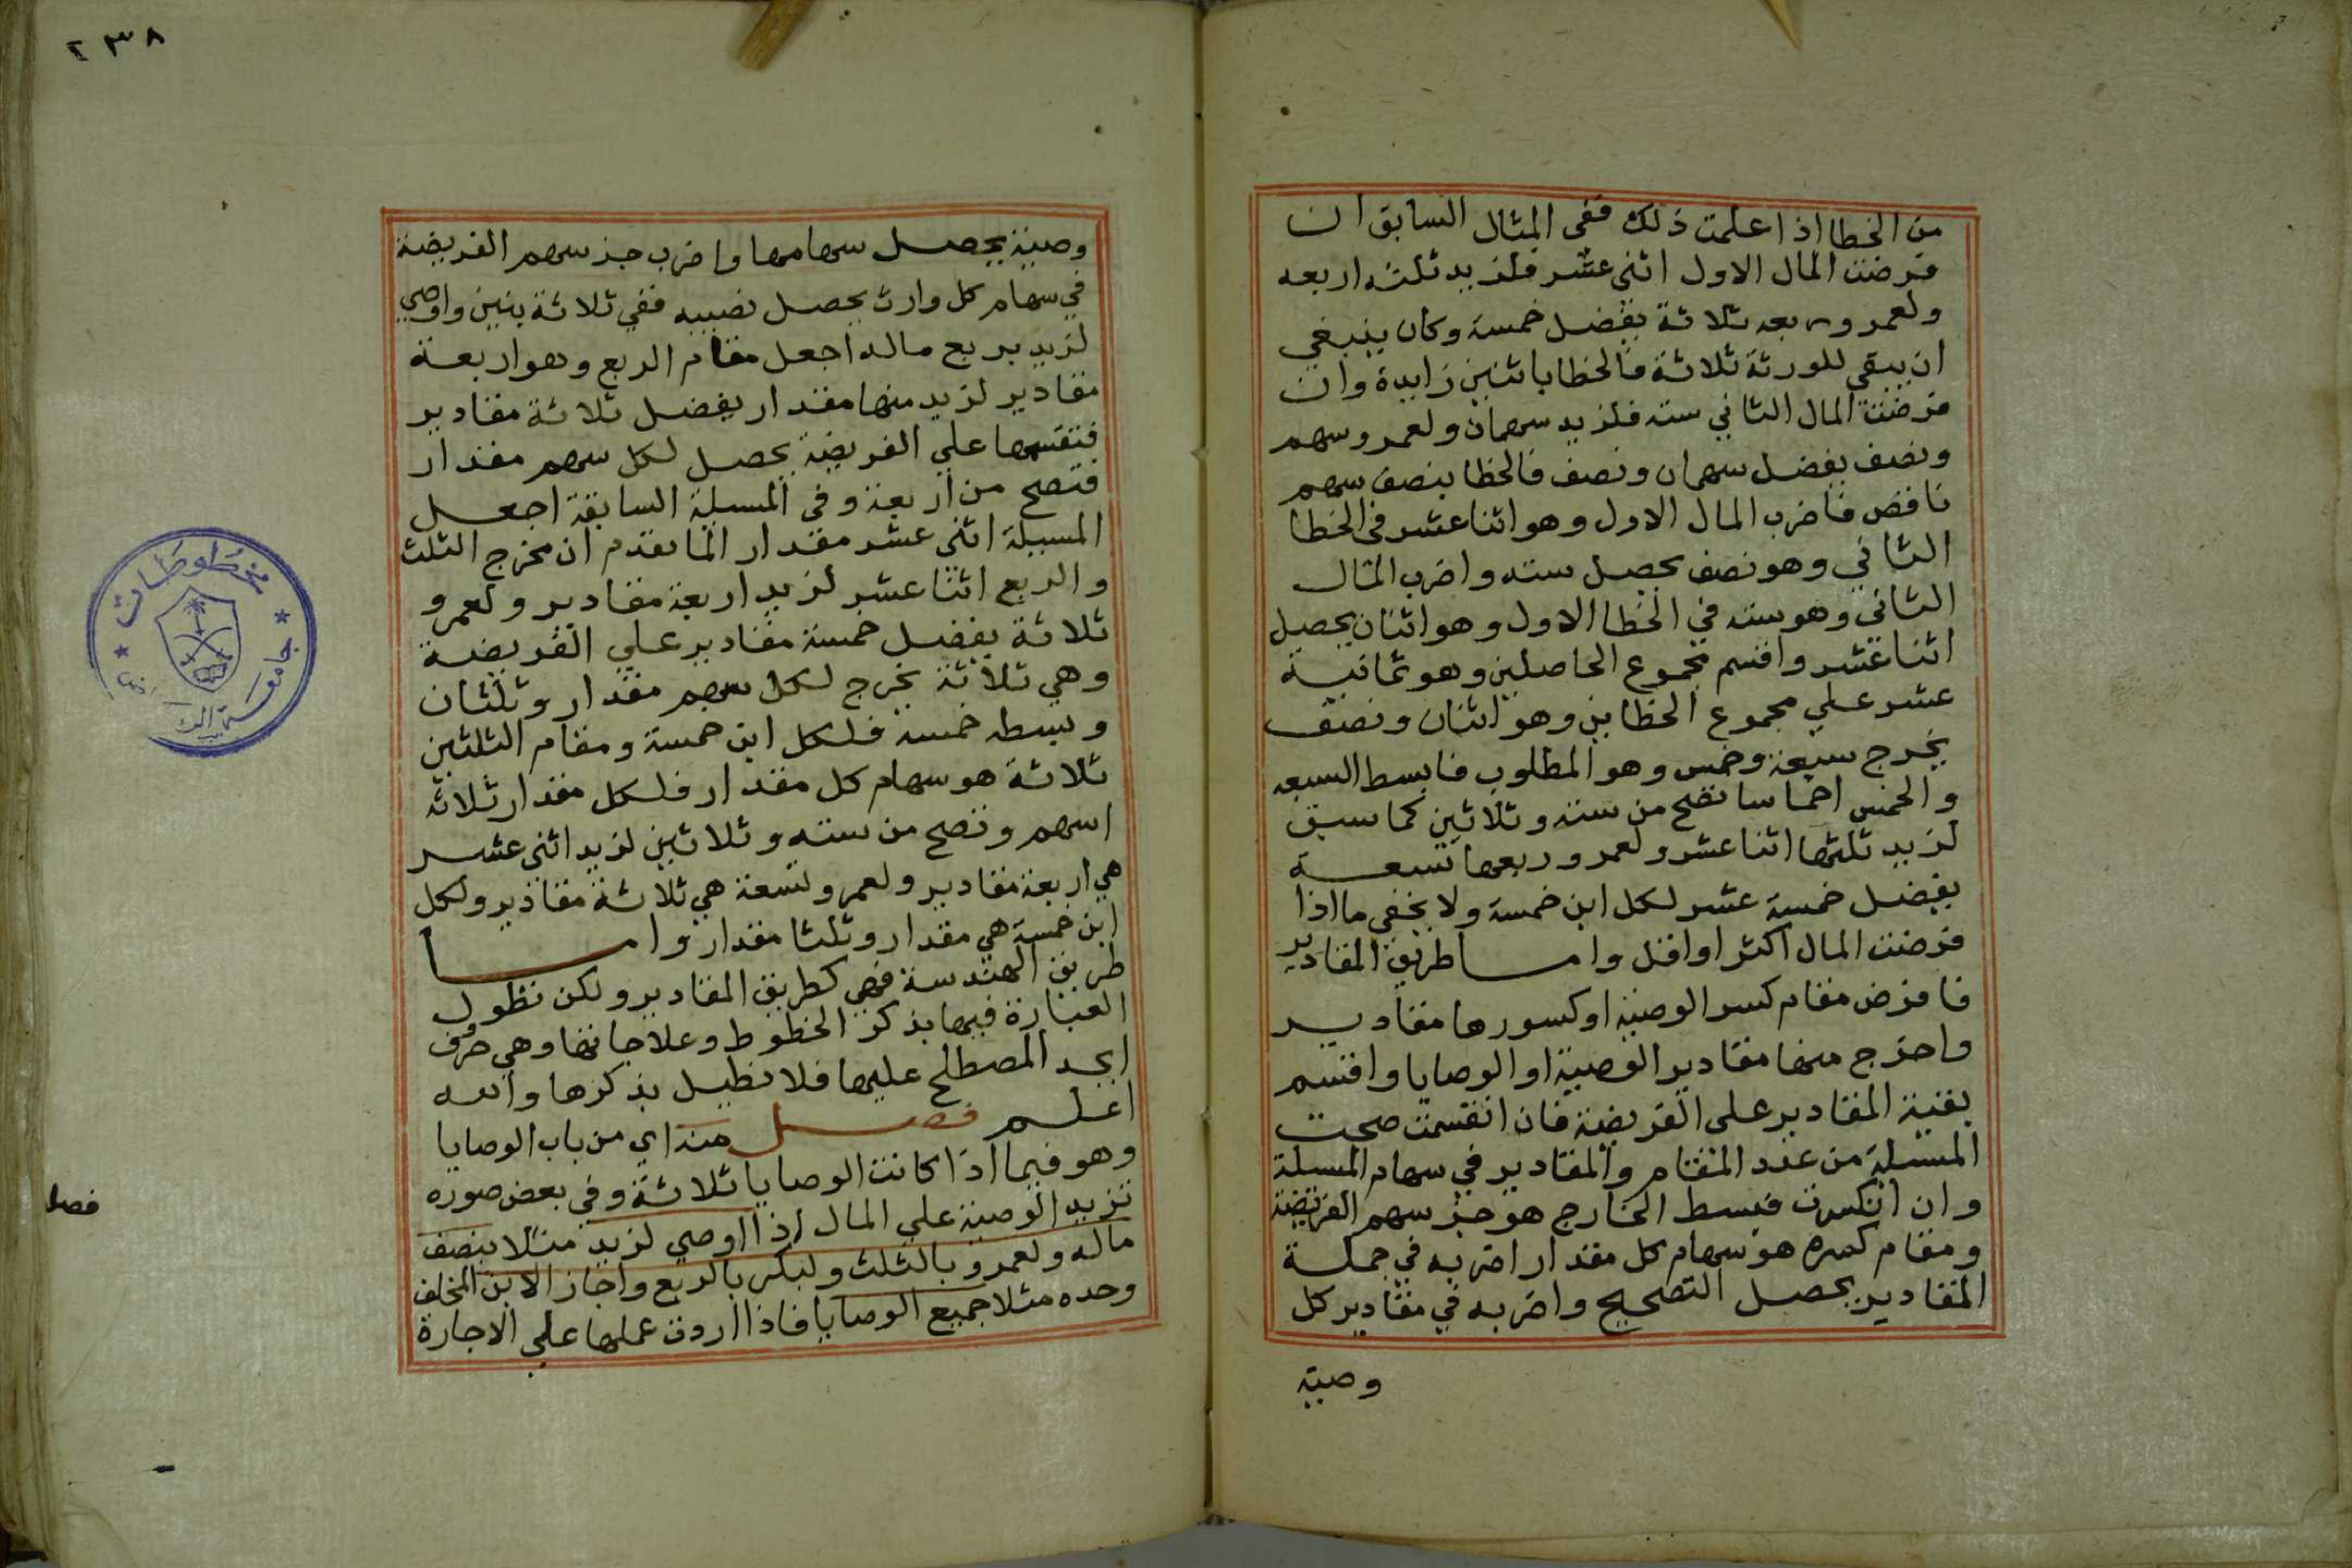 من الخطا اذا علمت ذلك ففى المثال السابق ان
فرضت المال الاول اثنى عشر فلزيد ثلثه اربعه
ولعمرو ربعه ثلاثة يفضل خمسة وكان ينبغي
ان يبقى للورثة ثلاثة فالخطا باثنين زايدة وان
فرضت المال الثاني سته فلزيد سهمان ولعمرو سهم
ونصف يفضل سهمان ونصف فالخطا بنصف سهم
ناقص فاضرب المال الاول وهو اثنا عشر فى الخطا
الثاني وهو نصف يحصل سته واضرب المال
الثاني وهو سته في الخطا الاول وهو اثنان يحصل
اثنا عشر واقسم مجموع الحاصلين وهو ثمانية
عشر على مجموع الخطاين وهو اثنان ونصف
يخرج سبعة وخمس وهو المطلوب فابسط السبعه
والخمس اخماسا تصح من ستة وثلاثين كما سبق
لزيد ثلثها اثنا عشر ولعمرو ربعها تسعة
يفضل خمسة عشر لكل ابن خمسة ولا يخفى ما اذا
فرضت المال اكثر او اقل واما طريق المقادير
فافرض مقام كسر الوصية او كسورها مقادير
واخرج منها مقادير الوصية او الوصايا واقسم
بقية المقادير على الفريضة فان انقسمت صحت
المسئلة من عدد المقام والمقادير في سهام المسئلة
وان انكسرت فبسط الخارج هو جزء سهم الفريضة
ومقام كسره هو سهام كل مقدار اضربه في جملة
المقادير يحصل التصحيح واضربه في مقادير كل
وصية
٢٣٨
وصية يحصل سهامها واضرب جز سهم الفريضة
في سهام كل وارث يحصل نصيبه ففي ثلاثة بنين واوصى
لزيد بربع ماله اجعل مقام الربع وهو اربعة
مقادير لزيد منها مقدار يفضل ثلاثة مقادير
فتقسمها على الفريضة يحصل لكل سهم مقدار
فتصح من اربعة وفى المسيلة السابقة اجعل
المسيلة اثنى عشر مقدار الما تقدم ان مخرج الثلث
والربع اثنا عشر لزيد اربعة مقادير ولعمرو
ثلاثة يفضل خمسة مقادير على الفريضة
وهي ثلاثة يخرج لكل سهم مقدار وثلثان
وبسطه خمسة فلكل ابن خمسة ومقام الثلثين
ثلاثة هو سهام كل مقدار فلكل مقدار ثلاثه
اسهم وتصح من سته وثلاثين لزيد اثنى عشر
هي اربعة مقادير ولعمرو تسعة هي ثلاثة مقادير ولكل
ابن خمسة هي مقدار وثلثا مقدار واما
طريق الهندسة فهي كطريق المقادير ولكن تطول
العبارة فيها بذكر الخطوط وعلاماتها وهي حروف
ابجد المصطلح عليها فلا نطيل بذكرها والله
اعلم فصل منه اي من باب الوصايا
وهو فيما اذا كانت الوصايا ثلاثة وفي بعض صوره
تزيد الوصية على المال اذا اوصي لزيد مثلا بنصف
ماله ولعمرو بالثلث ولبكر بالربع واجاز الابن المخلف
وحده مثلا جميع الوصايا فاذا اردت عملها على الاجازة
فصل
مخطوطات
جامعة